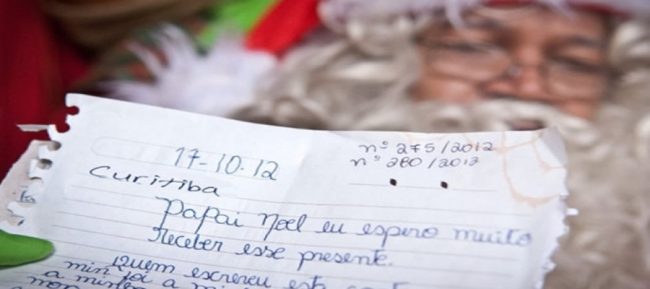 17-10-12
nº 275/2012
nº 280/2012
Curitiba
Papai Noel eu espero muito
Receber esse presente.
Quem escreveu esta
min foi a mi
a minha